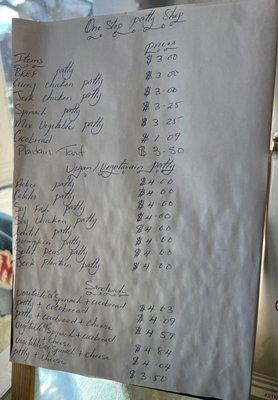 One Stop patty Shop
Items Prices
Beef patty $3.00
Curry chicken patty $3.00
Jerk chicken patty $3.00
Spinach patty $3.25
Mix Vegetable patty $3.25
Cocobread $1.09
Plantain Tart $3.50
Vegan/Vegetarian patty
Ackee patty $4.00
Calaloo patty $4.00
Soy Beef patty $4.00
Soy chicken patty $4.00
Lentil patty $4.00
pumpkin patty $4.00
Split Peas patty $4.00
Jerk Plantain patty $4.00
Sandwich
Vegetable or Spinach + cocobread $4.63
patty + cocobread $4.09
patty + cocobread + cheese $4.59
Vegetable or Spinach + cocobread
+ cheese $4.84
Vegetable or Spinach + cheese $4.04
patty + cheese $3.50